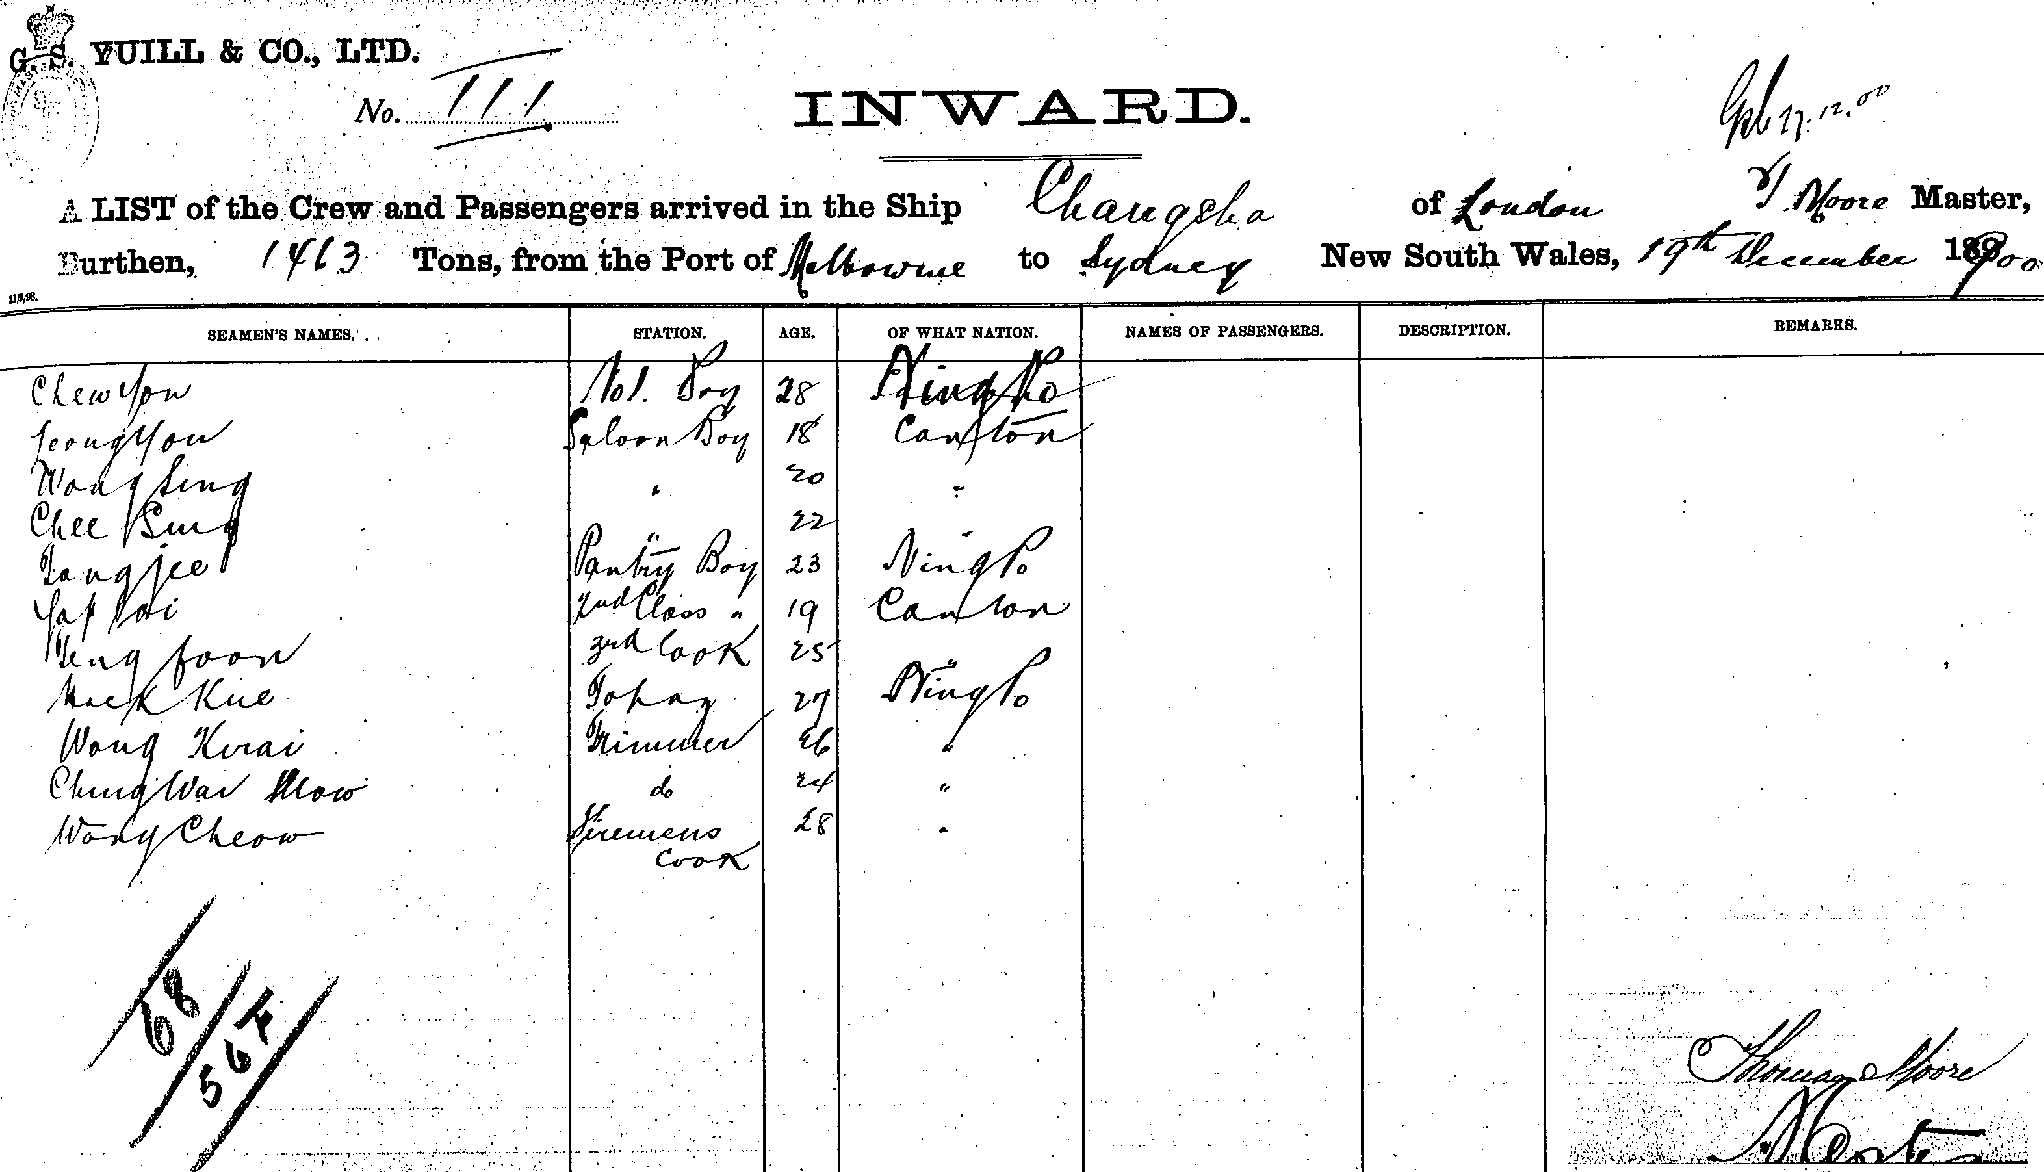 G. S. YUILL & CO., LTD.
No. 111
INWARD.
17.12.00
A LIST of the Crew and Passengers arrived in the Ship Changsha of London T Moore Master,
Burthen, 1463 Tons, from the Port of Melbourne to Sydney New South Wales, 19th December 1900
SEAMEN'S NAMES. STATION. AGE. OF WHAT NATION. NAMES OF PASSENGERS. DESCRIPTION. REMARKS.
Chew You No1. Boy 28 NingPo
Leong You Saloon Boy 18 Canton
Wong Sing " 20 "
Chee Sung " 22 "
Tang Jee Pantry Boy 23 NingPo
Yap Loi 2nd Class " 19 Canton
Foon 3rd Cook 25 "
Mack Kue Topaz 27 NingPo
Wong Kwai Trimmer 26 "
Ching Wai Mow do 24 "
Wong Cheow Firemens 28 "
Cook
68
564
Thomas Moore